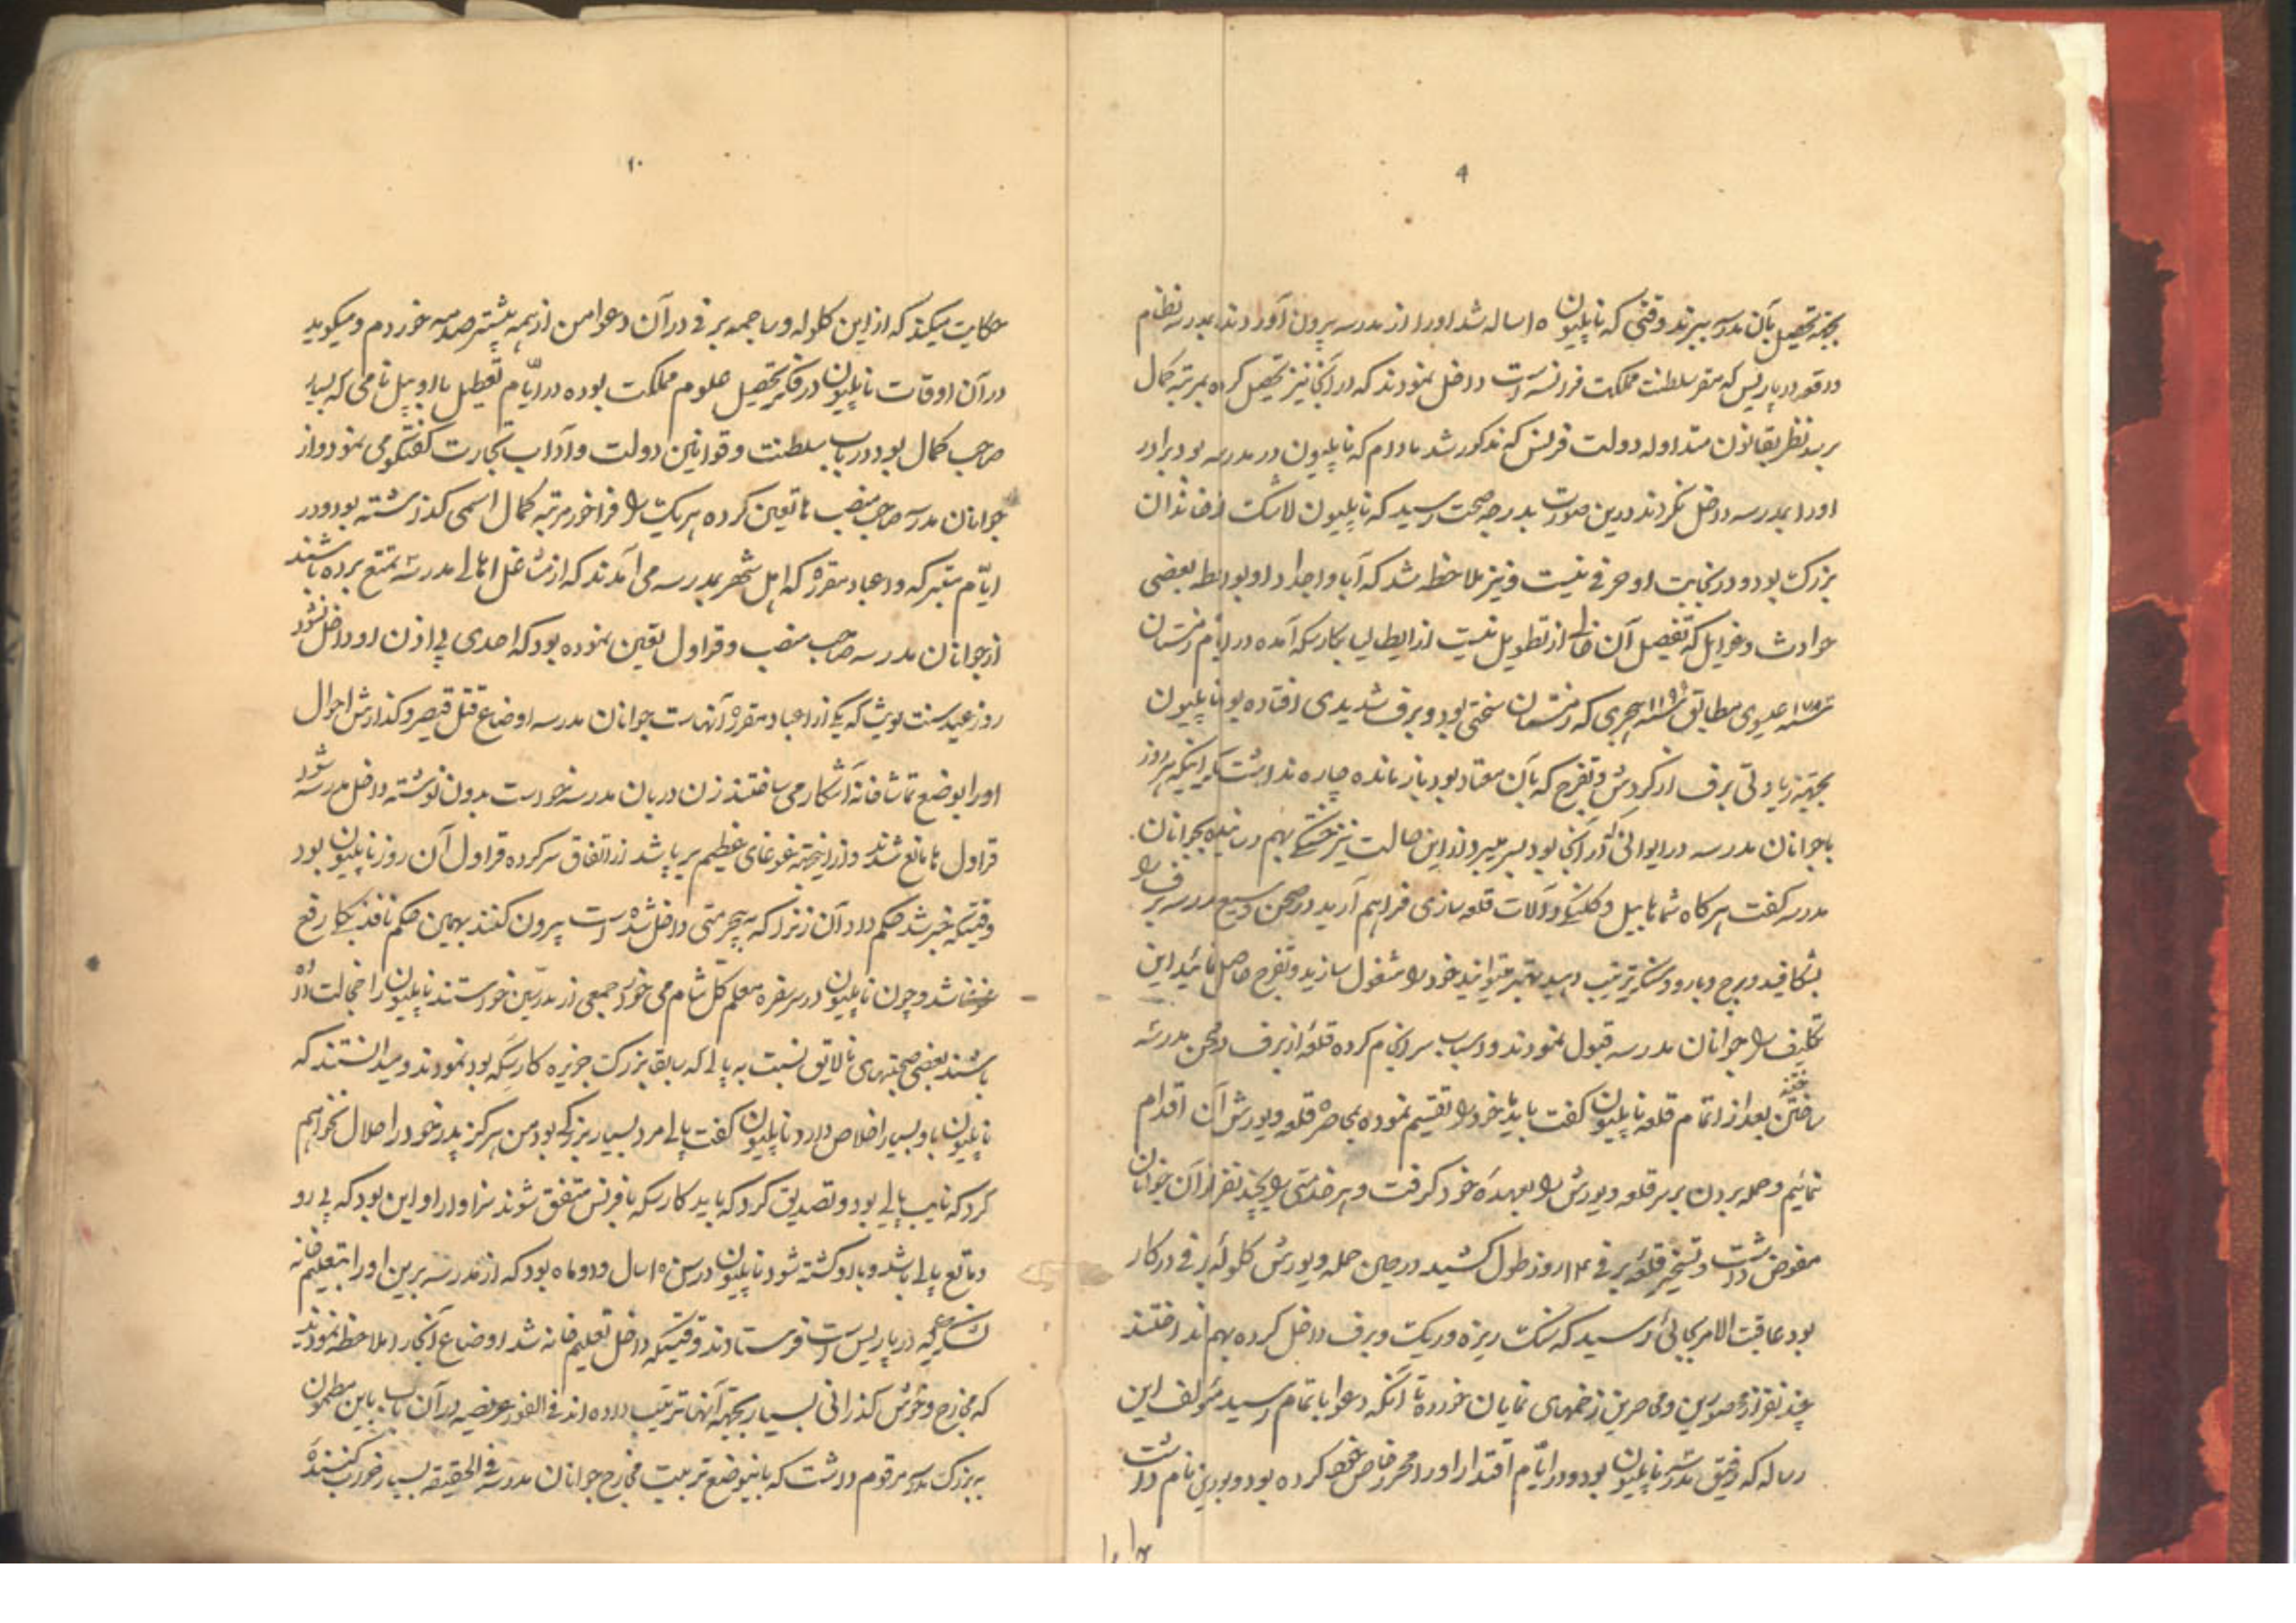 ۹
بجهة تحصیل بآن مدرسه ببرند وقتی که ناپلیون ۱۵ ساله شد اورا از مدرسه بیرون آوردند بمدرسه نظام
در پاریس که مقر سلطنت مملکت فرانسه است داخل نمودند که در آنجا نیز تحصیل کرده بمرتبه کمال
برسد نظر بقانون متداوله دولت فرانس که مذکور شد مادام که ناپلیون در مدرسه بود برادر
اورا بمدرسه داخل نکردند درین صورت بدرجه صحت رسید که ناپلیون لاشک از خاندان
بزرگ بود و در نجابت او حرفی نیست و نیز ملاحظه شد که آبا و اجداد او بواسطه بعضی
حوادث و نوایل که تفصیل آن خالی از تطویل نیست از ایطالیا بکارسکه آمده در ایام زمستان
عیسوی مطابق هجری که زمستان سختی بود و برف شدیدی افتاده بود ناپلیون
بجهة زیادتی برف از گردش و تفرج که بآن معتاد بود باز مانده چاره نداشت مگر اینکه هر روز
با جوانان مدرسه در ایوانی که در آنجا بود بسر میبرد از این حالت نیز بهم رسانیده بجوانان
مدرسه گفت هرگاه شماها بیل و کلنگ و آلات قلعه سازی فراهم آرید در صحن وسیع مدرسه برف را
بشکافید و برج و بارو و سنگر ترتیب دهید بهتر میتوانید خود را مشغول سازید و تفرج حاصل نمائید این
تکلیف را جوانان مدرسه قبول نمودند و اسباب سرانجام کرده قلعه از برف در صحن مدرسه
ساختند بعد از اتمام قلعه ناپلیون گفت باید ما خود را تقسیم نموده بمحاصره قلعه و یورش آن اقدام
نمائیم و حمله بردن بر سر قلعه و یورش را بعهده خود گرفت و هر خدمتی را بچند نفر از آن جوانان
مفوض داشت و تسخیر قلعه برفی ۱۴ روز طول کشید در حین حمله و یورش گلوله برفی در کار
بود عاقبت الامر بجائی رسید که سنگ ریزه و ریگ و برف داخل کرده بهم انداختند
چند نفر از محصورین و محاصرین زخمهای نمایان خورده تا آنکه دعوا باتمام رسید مؤلف این
رساله که رفیق مدرسه ناپلیون بود و در ایّام اقتدار او را محرر خاص خود کرده بود و بورین نام داشت
۱۰
حکایت میکند که از این گلوله و ساچمه برفی در آن دعوا من از همه بیشتر صدمه خوردم و میگوید
در آن اوقات ناپلیون در فکر تحصیل علوم مملکت بوده در ایّام تعطیل با او پیل نامی که بسیار
صاحب کمال بود در باب سلطنت و قوانین دولت و آداب تجارت گفتگو می نمود و از
جوانان مدرسه صاحب منصب ها تعین کرده هریک را فراخور مرتبه کمال اسمی گذاشته بود و در
ایّام متبرکه و اعیاد مقرره که اهل شهر بمدرسه می آمدند که از مشاغل اهالی مدرسه تمتع برده باشند
از جوانان مدرسه صاحب منصب و قراول تعین نموده بود که احدی بی اذن او داخل نشود
روز عید سنت لویث که یکی از اعیاد مقرره آنهاست جوانان مدرسه اوضاع قتل قیصر و گذارش احوال
اورا بوضع تماشاخانه آشکار می ساختند زن دربان مدرسه خواست بدون نوشته داخل مدرسه شود
قراول ها مانع شدند و از اینجهة غوغای عظیم برپا شد از اتفاق سرکرده قراول آن روز ناپلیون بود
وقتیکه خبر شد حکم داد آن زنرا که به بیحرمتی داخل شده است بیرون کنند بهمین حکم نافذ یکجا رفع
غوغا شد و چون ناپلیون در سر سفره معلم کل شام می خورد جمعی از مدرّسین خواستند ناپلیون را خجالت داده
باشند بعضی صحبتهای نالایق نسبت به پالی که سابقا بزرگ جزیره کارسکه بود نمودند و میدانستند که
ناپلیون باو بسیار اخلاص دارد ناپلیون گفت پالی مرد بسیار بزرگی بود من هرگز پدر خود را حلال نخواهم
کرد که نایب پالی بود و تصدیق کرد که باید کارسکه با فرانس متفق شوند سزاوار او این بود که پی رو
و تابع پالی باشد و با او کشته شود ناپلیون در سن ۱۵ سال و دو ماه بود که از مدرسه برین اورا بتعلیم خانه
که در پاریس است فرستادند وقتیکه داخل تعلیم خانه شد اوضاع آنجا را ملاحظه نمود دید
که مخارج و خوش گذرانی بسیار بجهة آنها ترتیب داده اند فی الفور عریضه در آن باب باین مضمون
به بزرگ مدرسه مرقوم داشت که باینوضع تربیت مخارج جوانان مدرسه فی الحقیقه بسیار خراب کننده